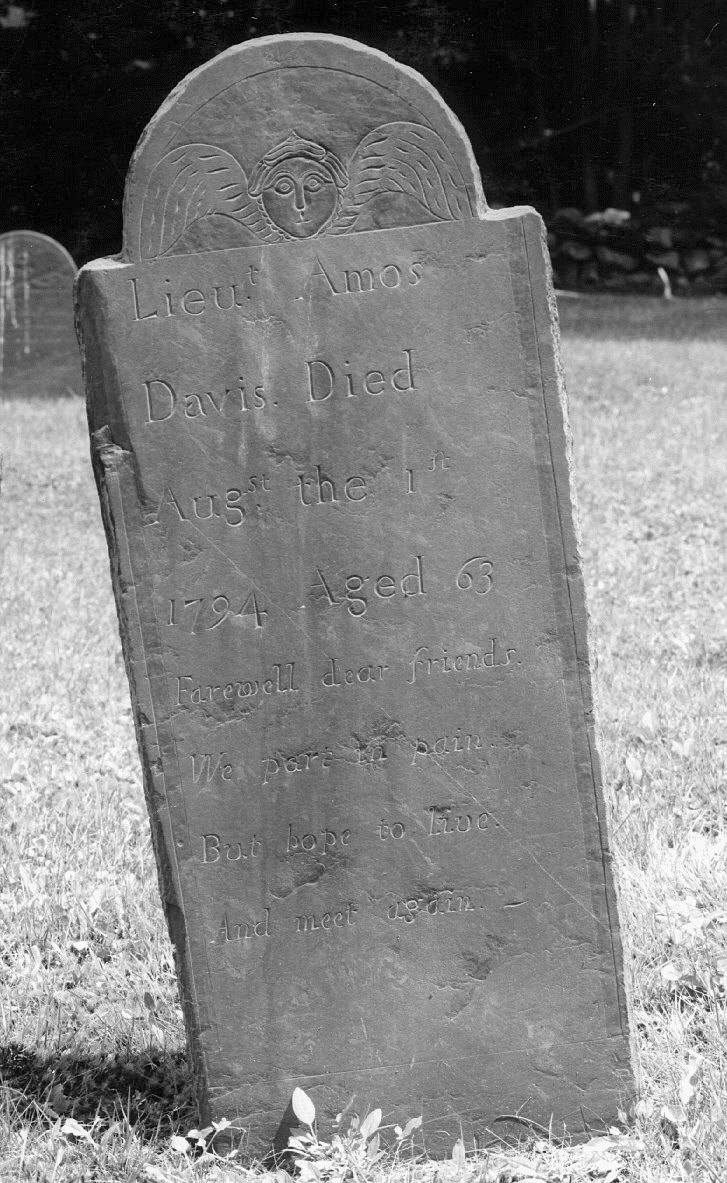 Lieu.t Amos
Davis. Died
Aug.st the 1st
1794 Aged 63
Farewell dear friends.
We part in pain.
But hope to live.
And meet again. –